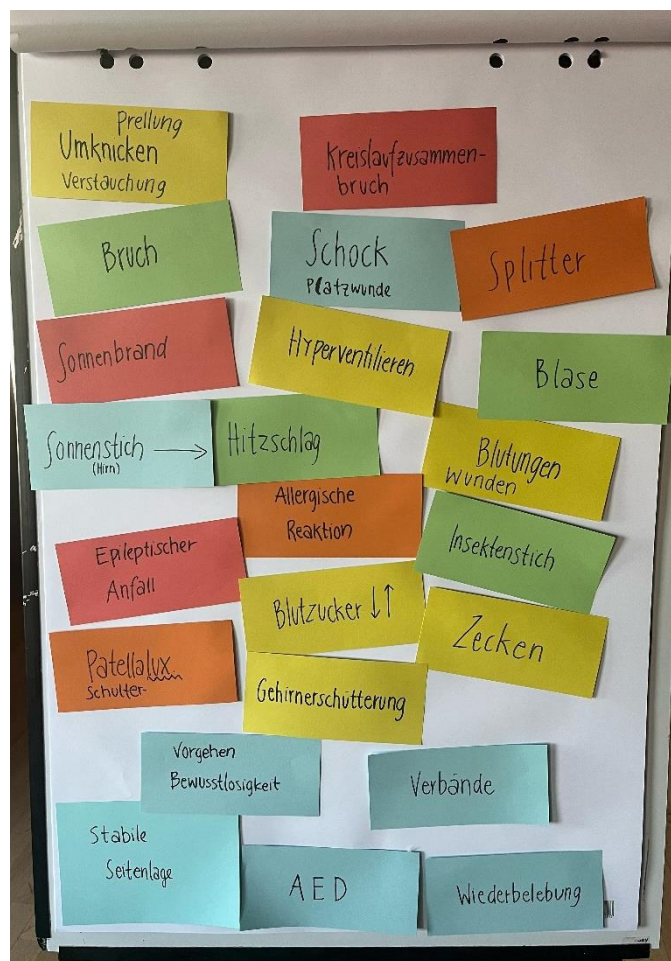 Prellung
Umknicken
Verstauchung
Kreislaufzusammen-
bruch
Bruch
Schock
Platzwunde
Splitter
Sonnenbrand
Hyperventilieren
Blase
Sonnenstich →
(Hirn)
Hitzschlag
Blutungen
Wunden
Allergische
Reaktion
Epileptischer
Anfall
Insektenstich
Blutzucker ↓↑
Zecken
Patellalux.
Schulter-
Gehirnerschütterung
Vorgehen
Bewusstlosigkeit
Verbände
Stabile
Seitenlage
AED
Wiederbelebung